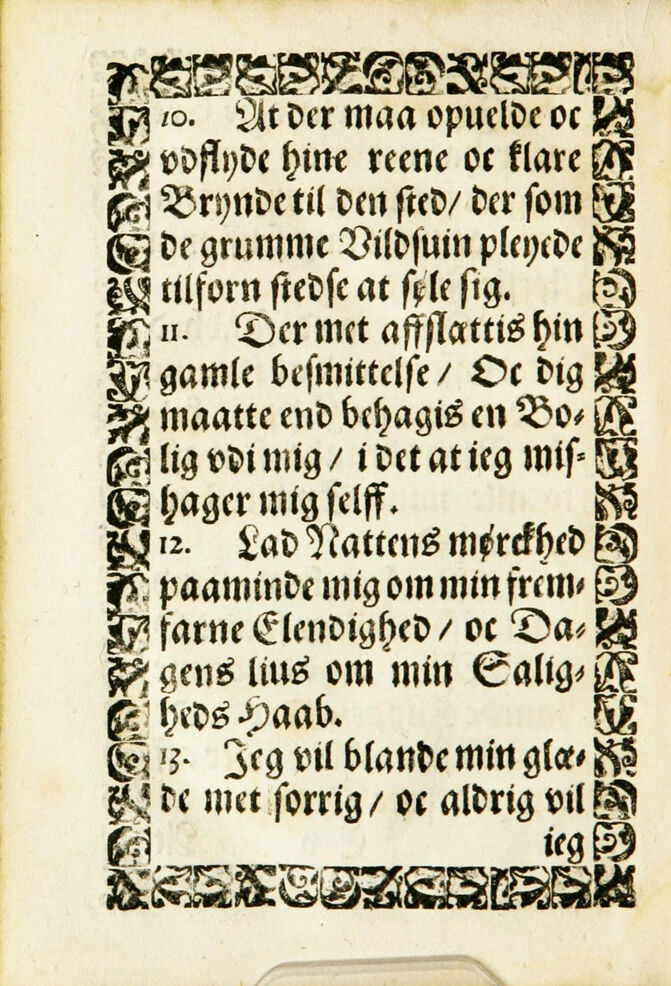 10. At der maa opuelde oc
vdflyde hine reene oc klare
Brynde til den sted/ der som
de grumme Vildsuin pleyede
tilforn stedse at søle sig.
11. Der met affslættis hin
gamle besmittelse / Oc dig
maatte end behagis en Bo-
lig vdi mig / i det at ieg mis-
hager mig selff.
12. Lad Nattens mørckhed
paaminde mig om min frem-
farne Elendighed / oc Da-
gens lius om min Salig-
heds Haab.
13. Jeg vil blande min glæ-
de met sorrig / oc aldrig vil
ieg